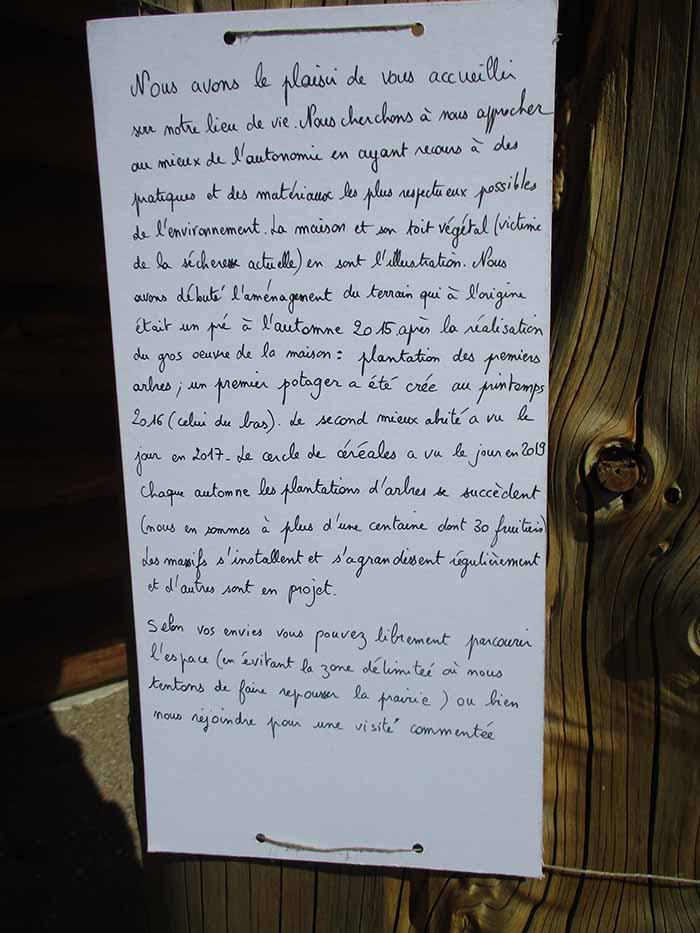 Nous avons le plaisir de vous accueillir
sur notre lieu de vie. Nous cherchons à nous approcher
au mieux de l'autonomie en ayant recours à des
pratiques et des matériaux les plus respectueux possibles
de l'environnement. La maison et son toit végétal (victime
de la sécheresse actuelle) en sont l'illustration. Nous
avons débuté l'aménagement du terrain qui à l'origine
était un pré à l'automne 2015.après la réalisation
du gros oeuvre de la maison : plantation des premiers
arbres ; un premier potager a été crée au printemps
2016 (celui du bas). Le second mieux abrité a vu le
jour en 2017_ Le cercle de céréales a vu le jour en 2019
Chaque automne les plantations d'arbres se succèdent
(nous en sommes à plus d'une centaine dont 30 fruitiers)
Les massifs s'installent et s'agrandissent régulièrement
et d'autres sont en projet.
Selon vos envies vous pouvez librement parcourir
l'espace (en évitant la zone délimiteé où nous
tentons de faire repousser la prairie) ou bien
nous rejoindre pour une visite commentée